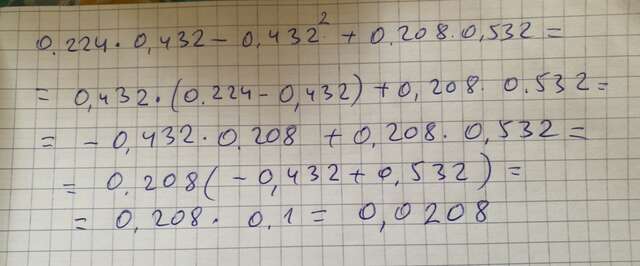 0.224 · 0,432 - 0,432² + 0.208 · 0,532 =
= 0,432 · (0.224 - 0,432) + 0,208 · 0.532 =
= - 0,432 · 0,208 + 0,208 · 0,532 =
= 0.208 ( - 0,432 + 0,532 ) =
= 0,208 · 0.1 = 0,0208